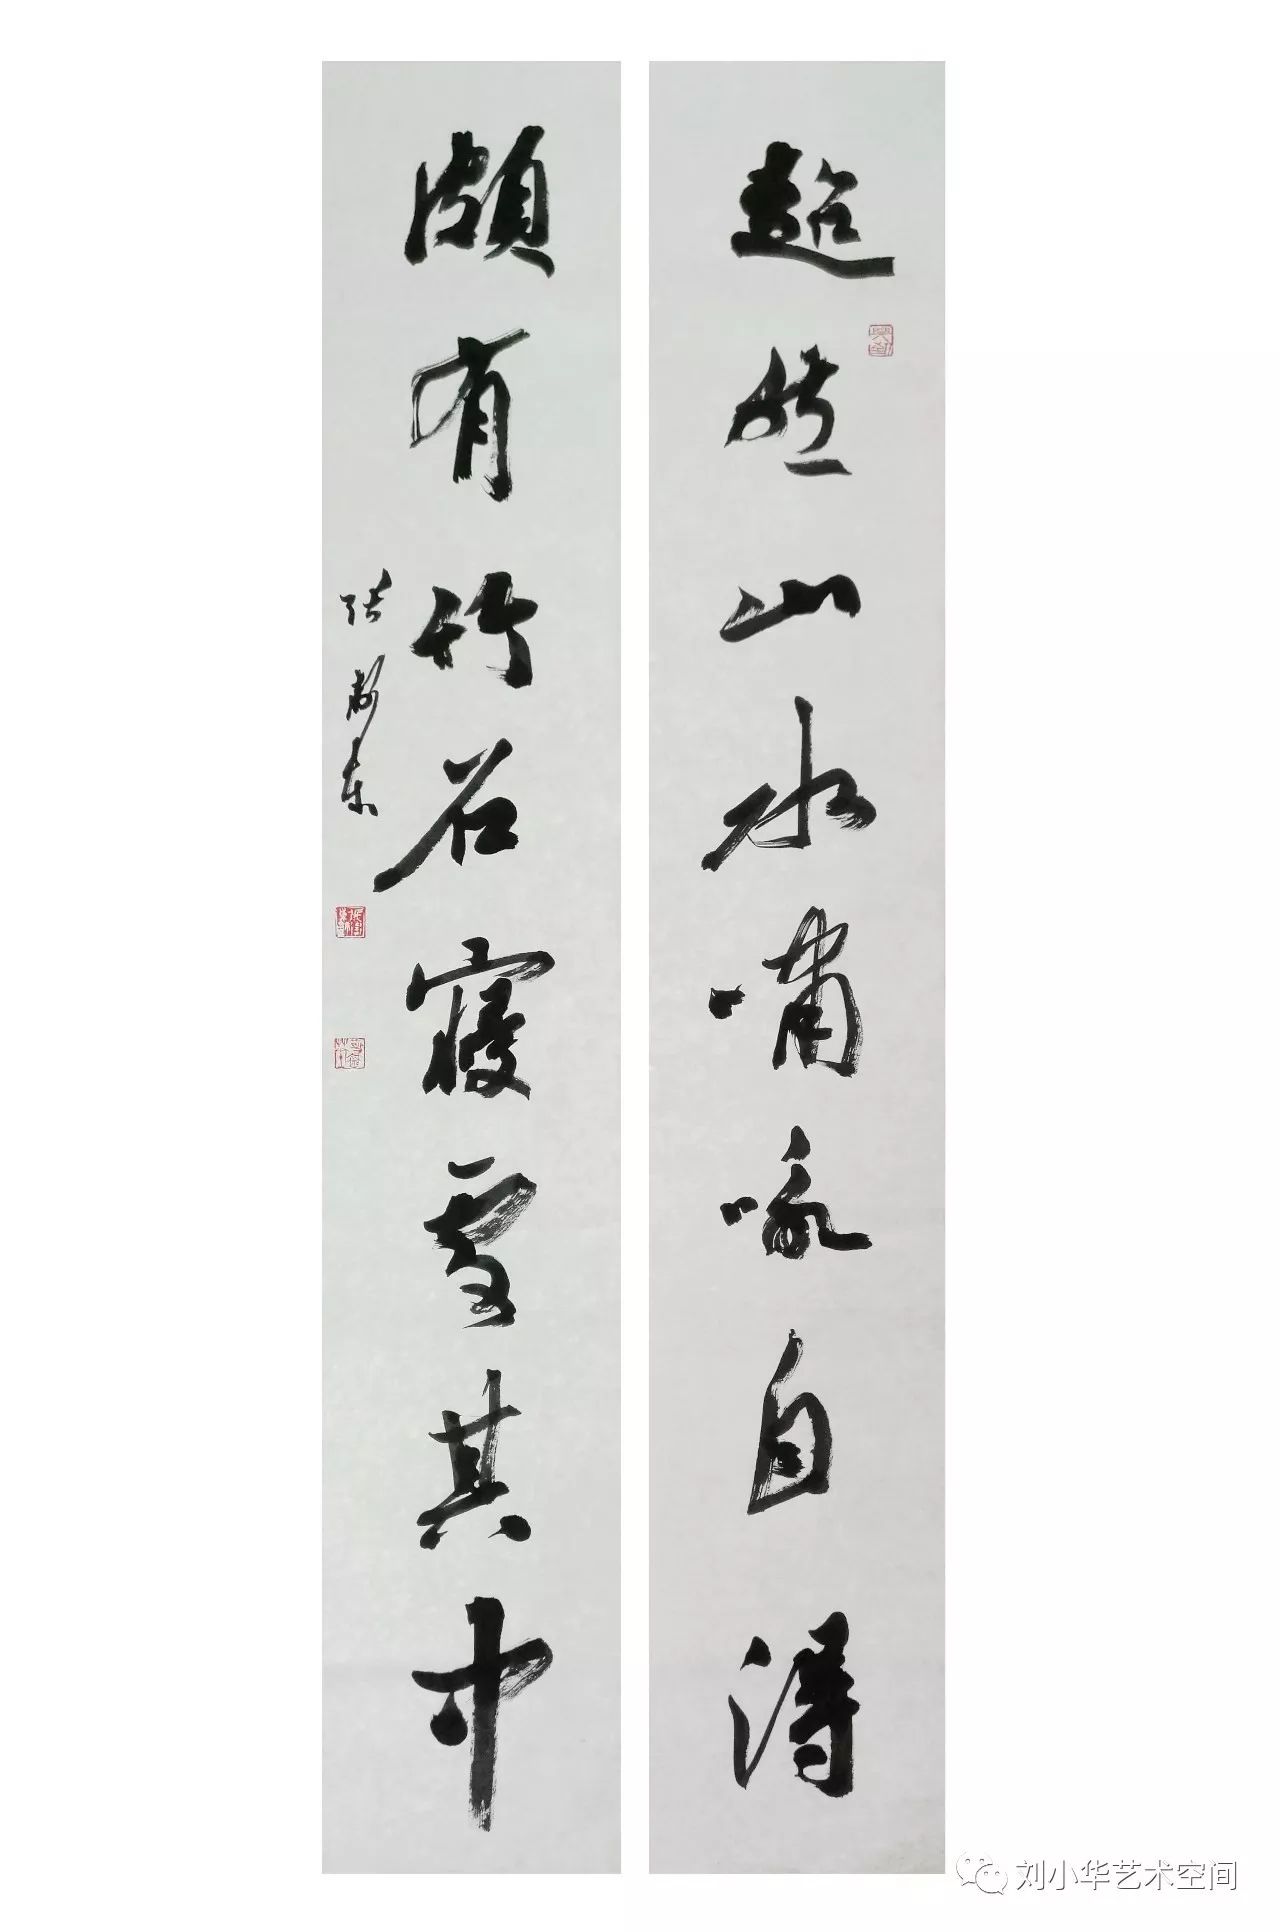 超然山水啸咏自得
颇有竹石寝处其中
张
刘小华艺术空间